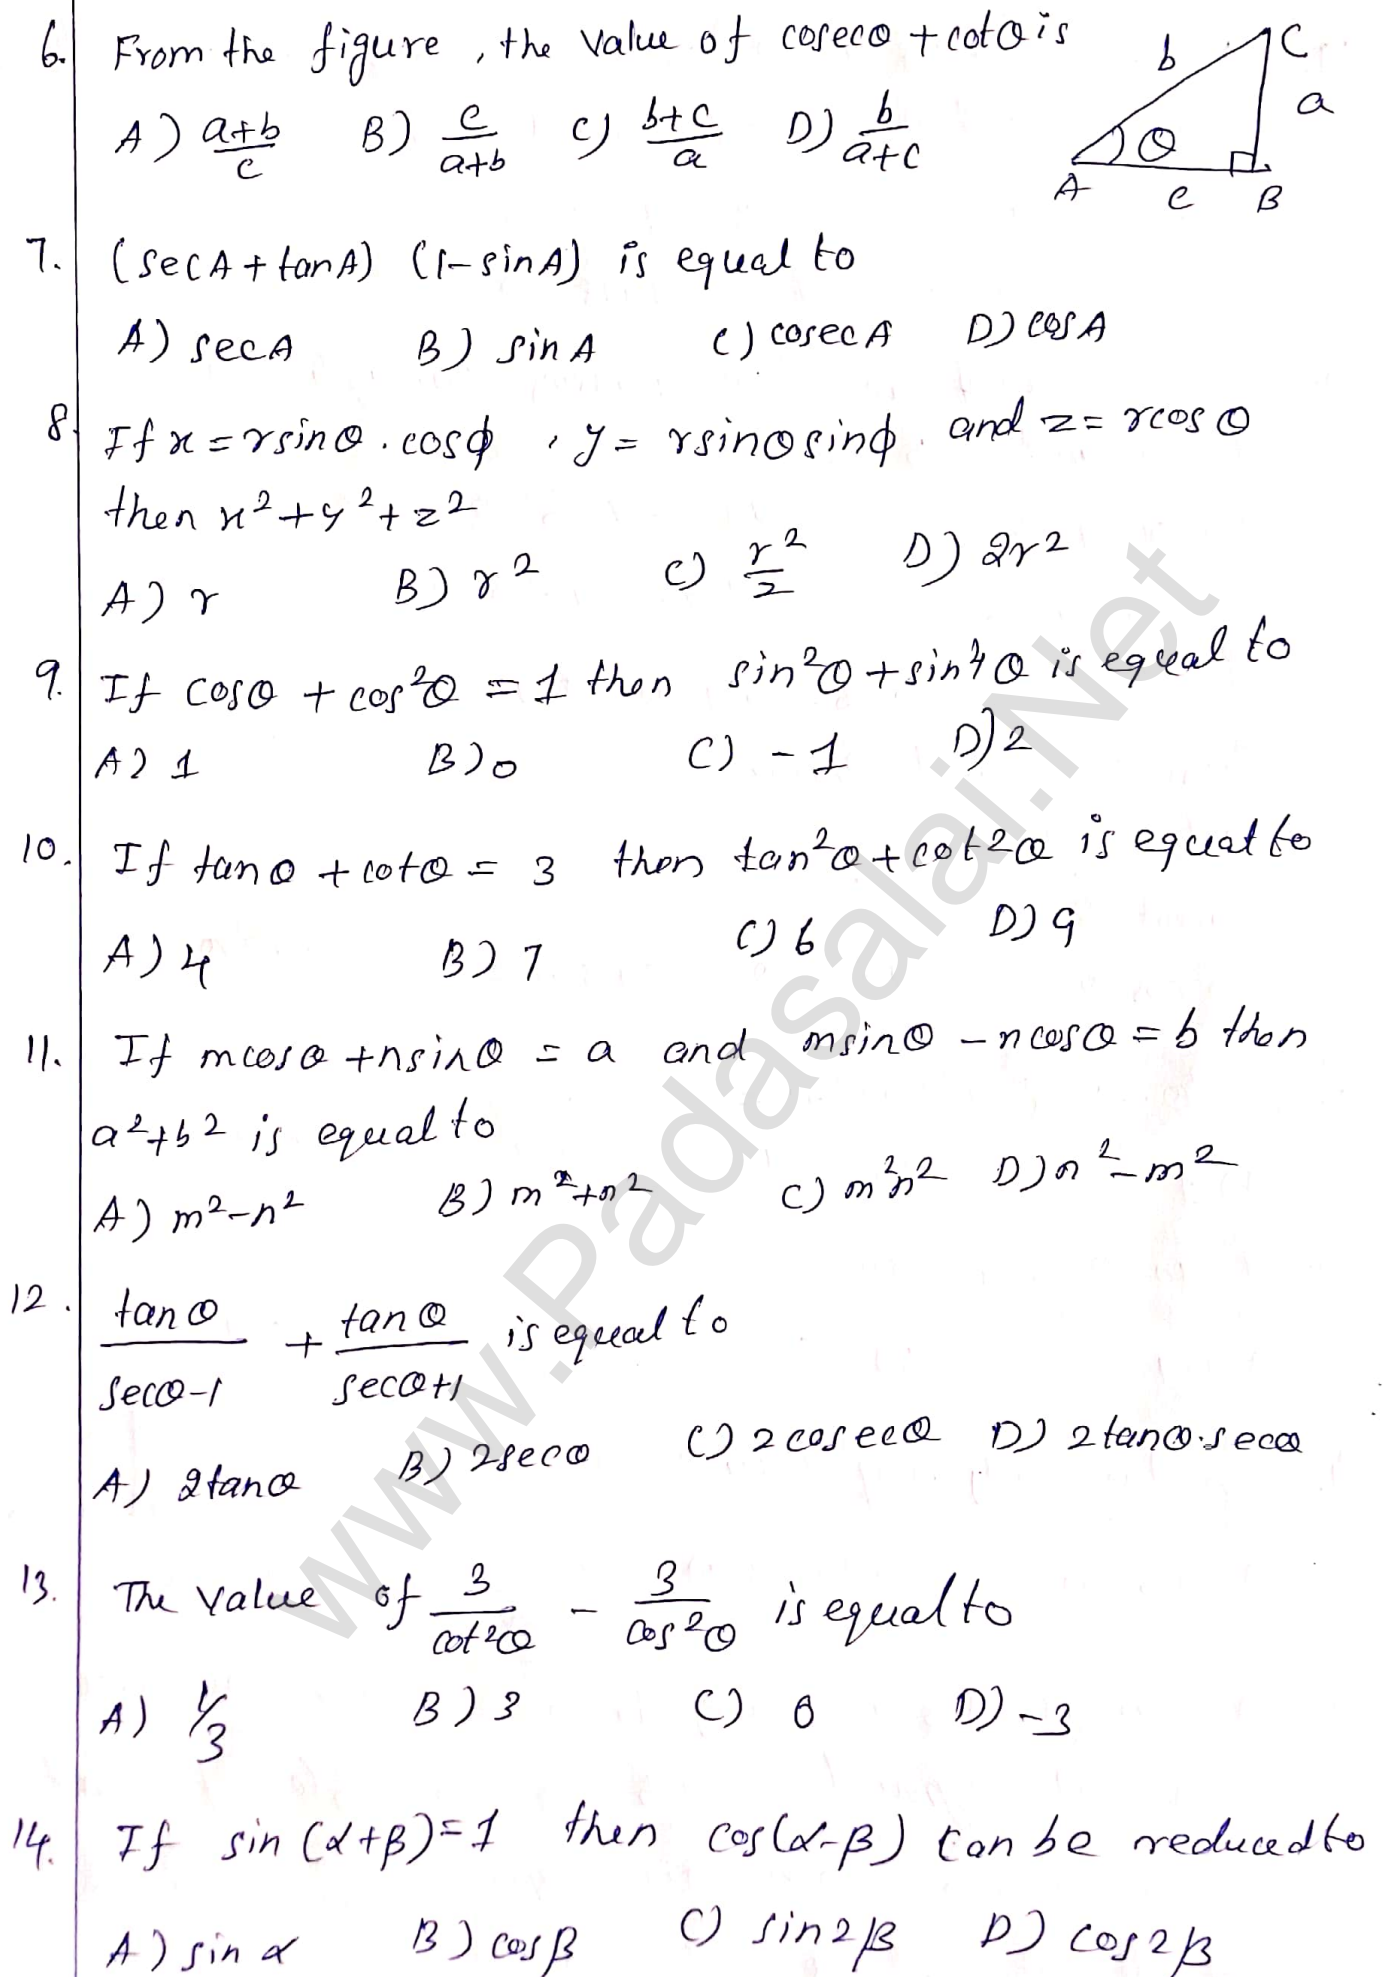 6. From the figure, the value of cosecθ + cotθ is
A) a+b/c B) c/a+b C) b+c/a D) b/a+c
b C a θ A c B
7. (secA + tanA) (1-sinA) is equal to
A) secA B) sinA C) cosecA D) cosA
8. If x = rsinθ.cosϕ, y = rsinθsinϕ and z = rcosθ
then x²+y²+z²
A) r B) r² C) r²/2 D) 2r²
9. If cosθ + cos²θ = 1 then sin²θ + sin⁴θ is equal to
A) 1 B) 0 C) -1 D) 2
10. If tanθ + cotθ = 3 then tan²θ + cot²θ is equal to
A) 4 B) 7 C) 6 D) 9
11. If mcosθ + nsinθ = a and msinθ - ncosθ = b then
a²+b² is equal to
A) m²-n² B) m²+n² C) m²n² D) n²-m²
12. tanθ/secθ-1 + tanθ/secθ+1 is equal to
A) 2tanθ B) 2secθ C) 2cosecθ D) 2tanθ.secθ
13. The value of 3/cot²θ - 3/cos²θ is equal to
A) 1/3 B) 3 C) 0 D) -3
14. If sin(α+β)=1 then cos(α-β) can be reduced to
A) sin α B) cosβ C) sin2β D) cos2β
www.Padasalai.Net